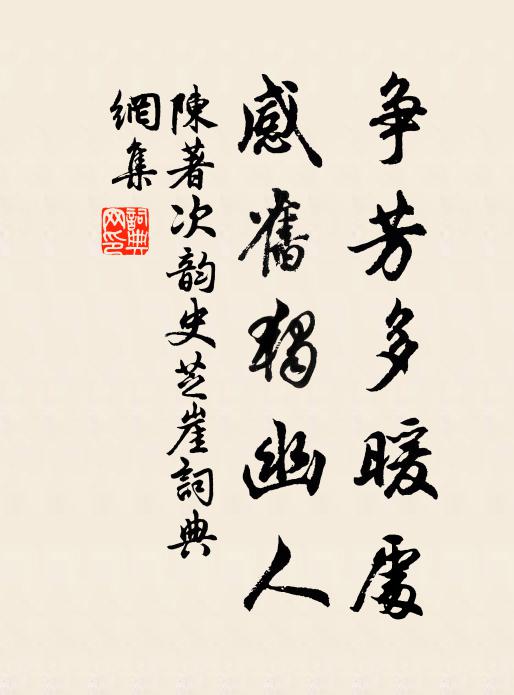 争芳多暖處
感舊獨幽人
陳著次韵史芝崖詞典
網集
詞典
网印